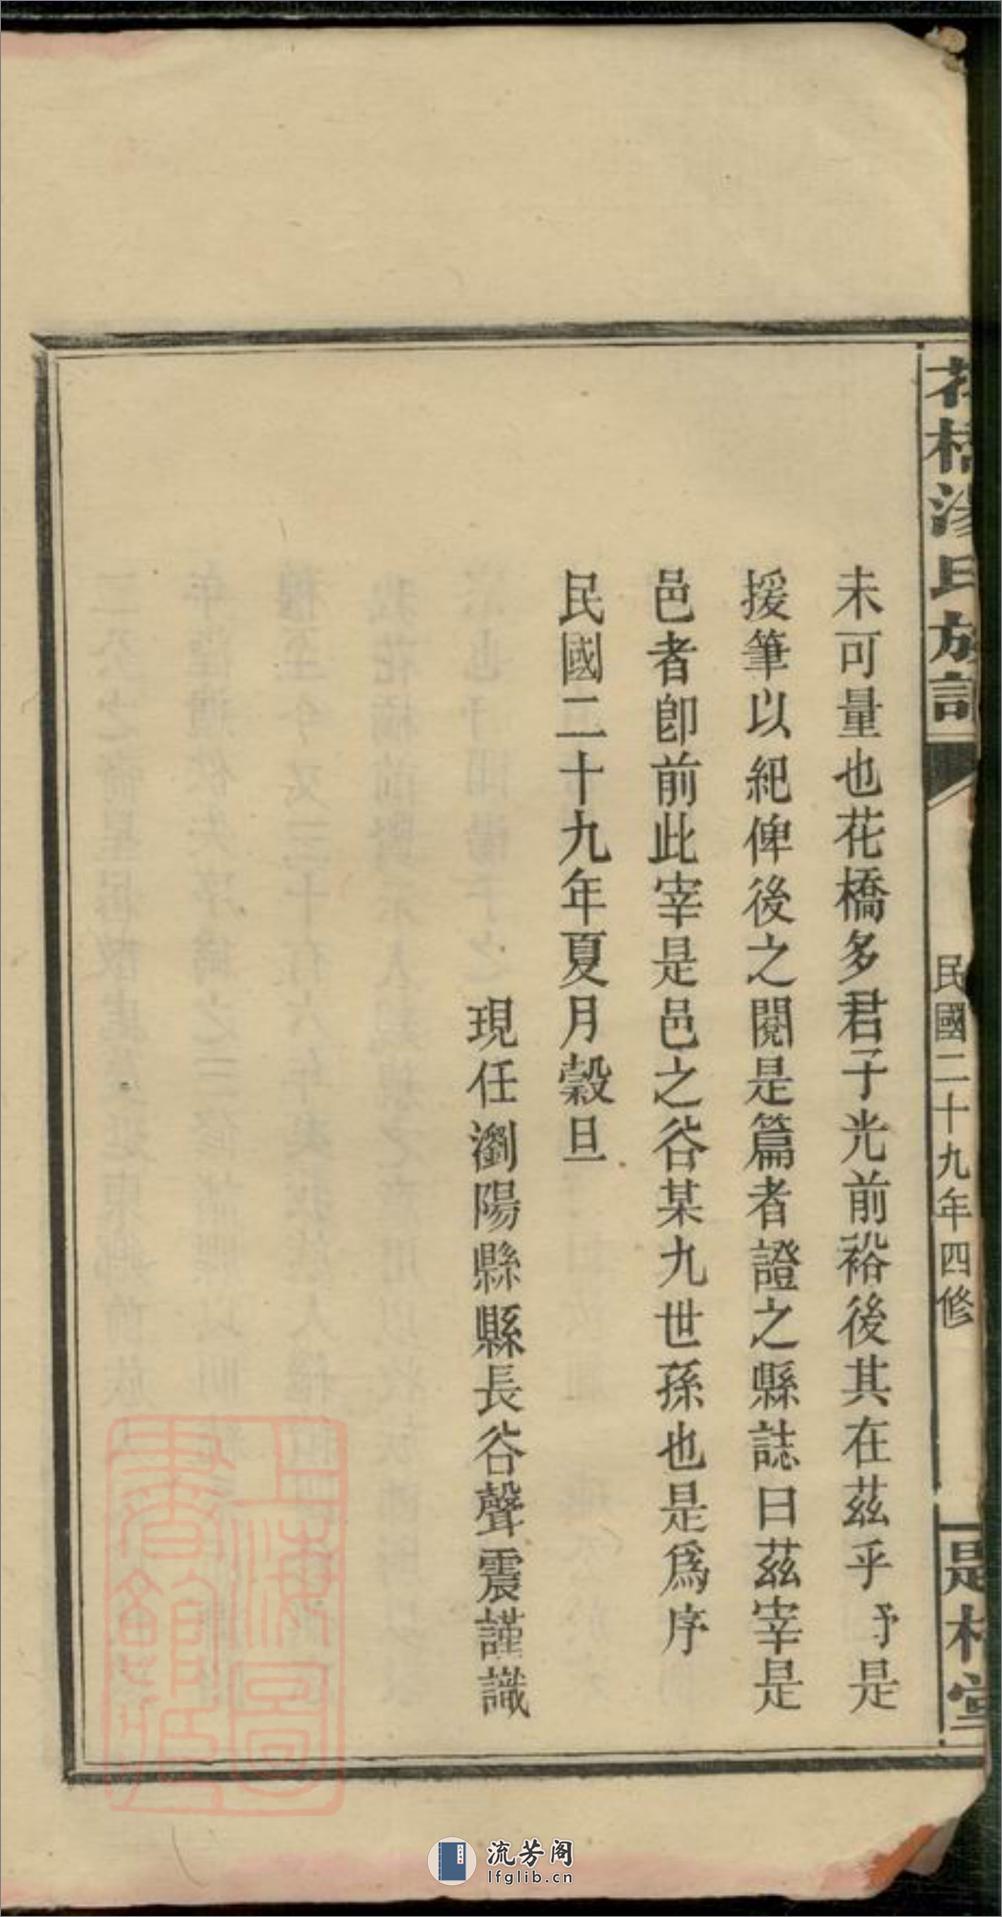 花橋湯氏族譜
民國二十九年四修
未可量也花橋多君子光前裕後其在茲乎予是
援筆以紀俾後之閱是篇者證之縣誌曰茲宰是
邑者卽前此宰是邑之谷某九世孫也是爲序
民國二十九年夏月穀旦
現任瀏陽縣縣長谷聲震謹識
上海圖書館藏
流芳阁
lfglib.cn